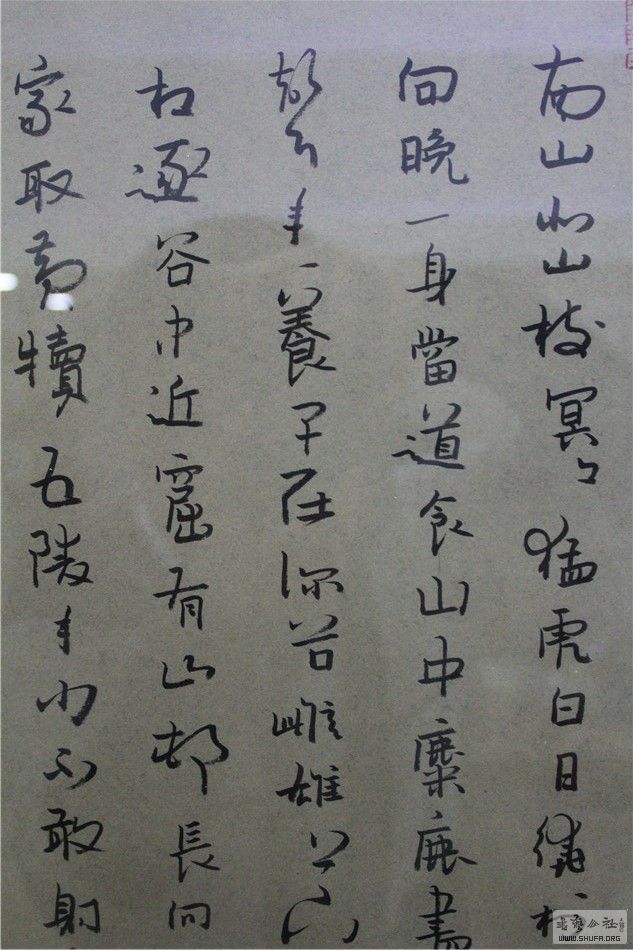 南山北山樹冥々猛虎白日繞村
向晚一身當道食山中麋鹿盡
聲年々養子在深谷雌雄上山
相逐谷中近窟有山邨長向
家取黃犢五陵年少不敢射
書法公社
WWW.SHUFA.ORG